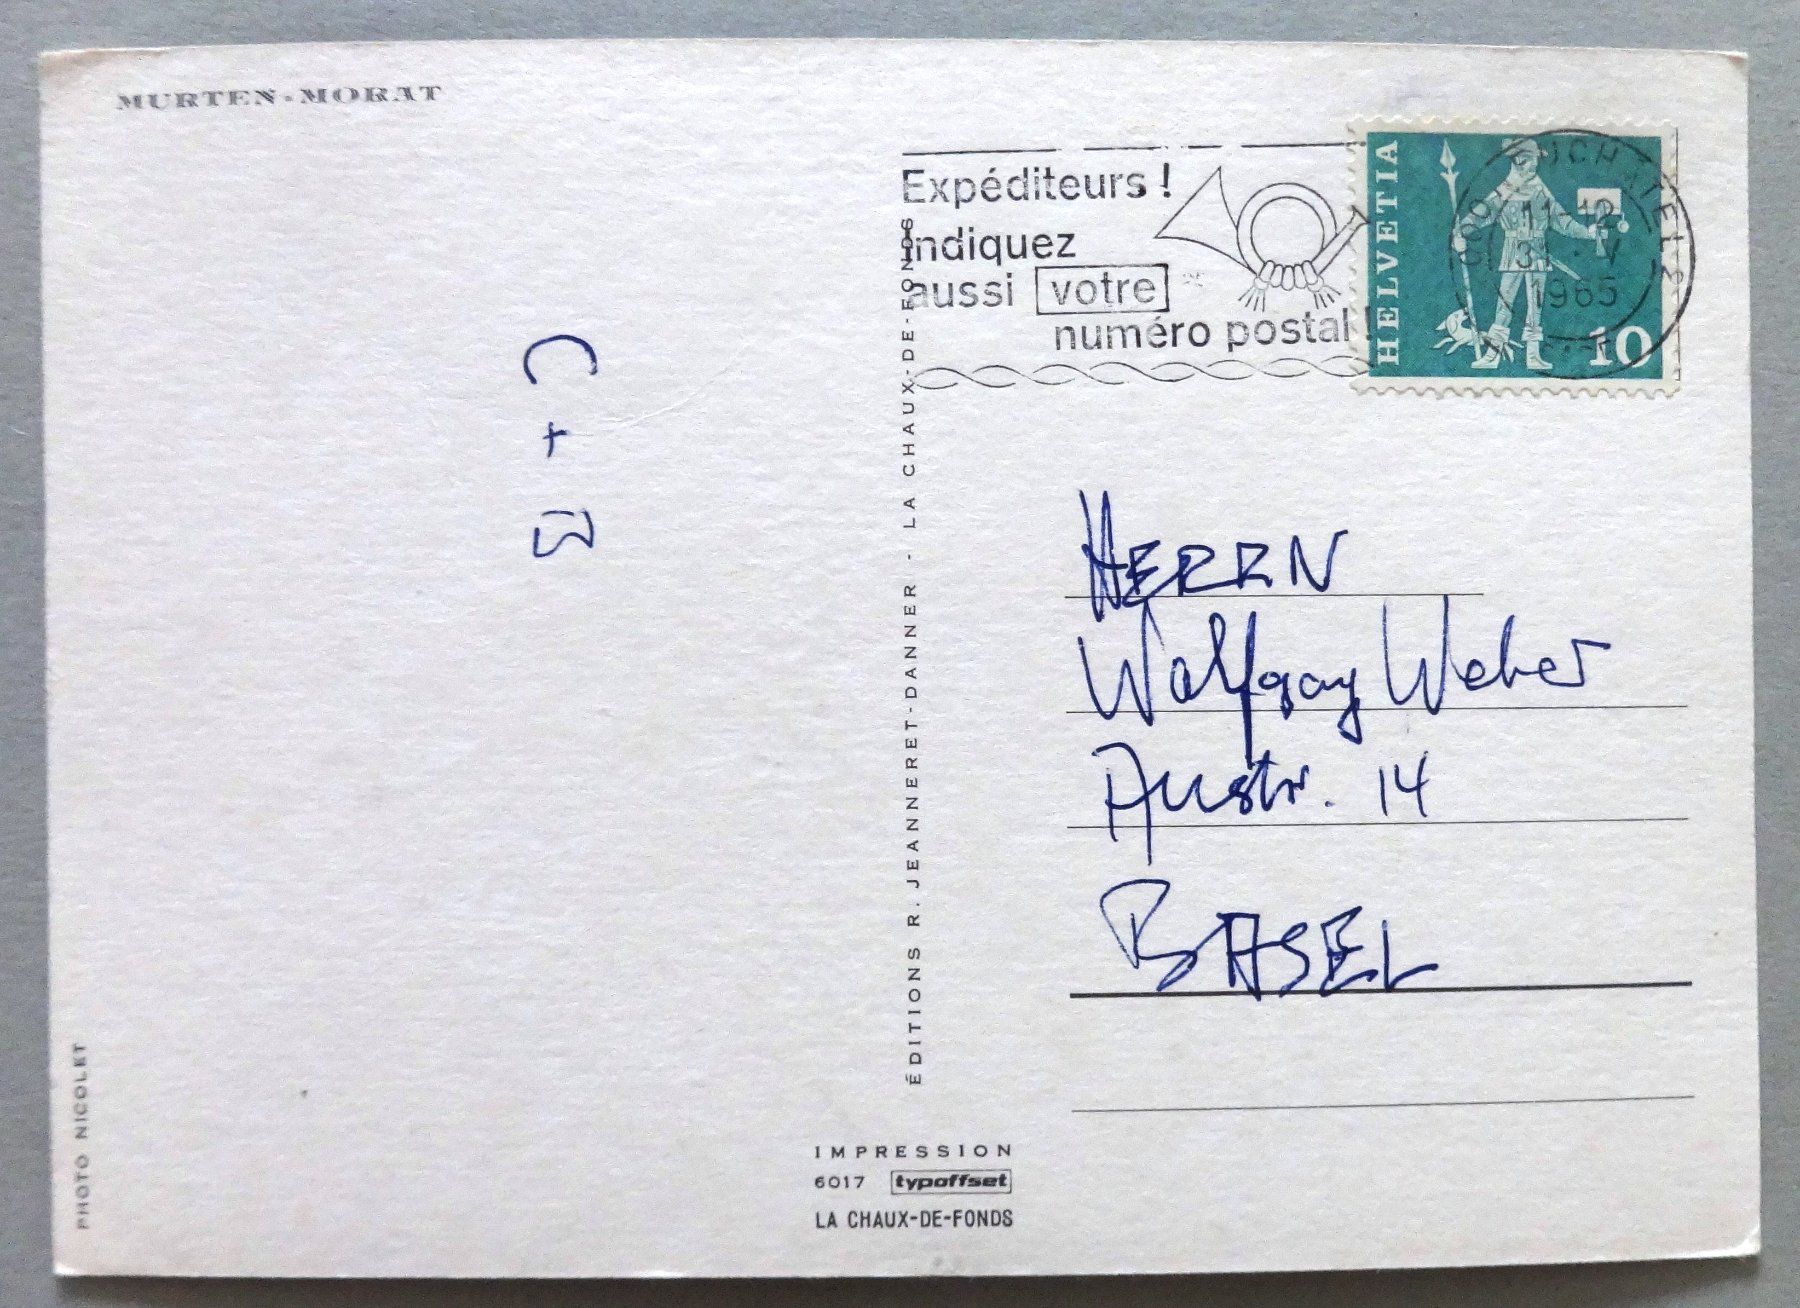 MURTEN-MORAT
Expéditeurs !
Indiquez
aussi votre
numéro postal !
HELVETIA
10
2000 NEUCHATEL 2
11-12
31. V
1965
C + B
HERRN
Wolfgang Weber
Austr. 14
BASEL
ÉDITIONS R. JEANNERET-DANNER - LA CHAUX-DE-FONDS
PHOTO NICOLET
IMPRESSION
6017 typoffset
LA CHAUX-DE-FONDS